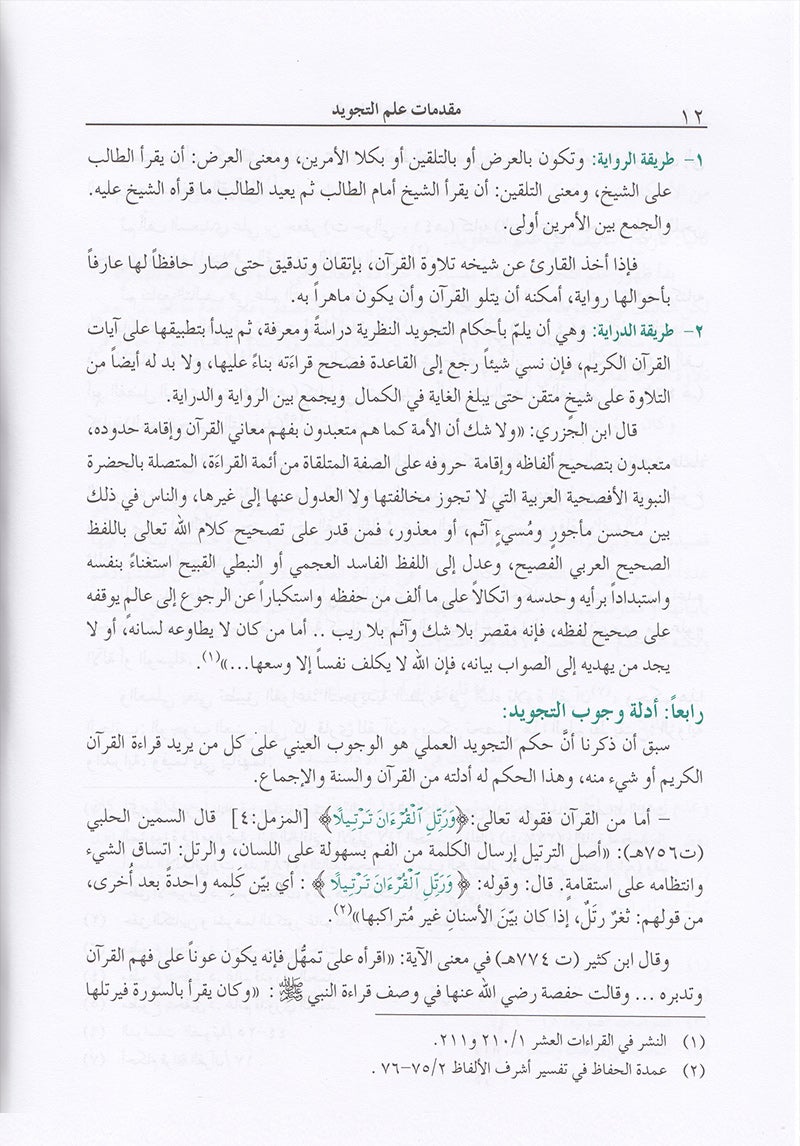 ١٢
مقدمات علم التجويد
١- طريقة الرواية: وتكون بالعرض أو بالتلقين أو بكلا الأمرين، ومعنى العرض: أن يقرأ الطالب
على الشيخ، ومعنى التلقين: أن يقرأ الشيخ أمام الطالب ثم يعيد الطالب ما قرأه الشيخ عليه.
والجمع بين الأمرين أولى.
فإذا أخذ القارئ عن شيخه تلاوة القرآن، بإتقان وتدقيق حتى صار حافظاً لها عارفاً
بأحوالها رواية، أمكنه أن يتلو القرآن وأن يكون ماهراً به.
٢- طريقة الدراية: وهي أن يلمّ بأحكام التجويد النظرية دراسةً ومعرفة، ثم يبدأ بتطبيقها على آيات
القرآن الكريم، فإن نسي شيئاً رجع إلى القاعدة فصحح قراءته بناءً عليها، ولا بد له أيضاً من
التلاوة على شيخٍ متقن حتى يبلغ الغاية في الكمال ويجمع بين الرواية والدراية.
قال ابن الجزري: «ولا شك أن الأمة كما هم متعبدون بفهم معاني القرآن وإقامة حدوده،
متعبدون بتصحيح ألفاظه وإقامة حروفه على الصفة المتلقاة من أئمة القراءة، المتصلة بالحضرة
النبوية الأفصحية العربية التي لا تجوز مخالفتها ولا العدول عنها إلى غيرها، والناس في ذلك
بين محسن مأجورٍ ومُسيءٍ آثم، أو معذور، فمن قدر على تصحيح كلام الله تعالى باللفظ
الصحيح العربي الفصيح، وعدل إلى اللفظ الفاسد العجمي أو النبطي القبيح استغناءً بنفسه
واستبداداً برأيه وحدسه واتكالاً على ما ألف من حفظه واستكباراً عن الرجوع إلى عالمٍ يوقفه
على صحيح لفظه، فإنه مقصر بلا شك وآثم بلا ريب .. أما من كان لا يطاوعه لسانه، أو لا
يجد من يهديه إلى الصواب بيانه، فإن الله لا يكلف نفساً إلا وسعها...»(١).
رابعاً: أدلة وجوب التجويد:
سبق أن ذكرنا أنَّ حكم التجويد العملي هو الوجوب العيني على كل من يريد قراءة القرآن
الكريم أو شيء منه، وهذا الحكم له أدلته من القرآن والسنة والإجماع.
– أما من القرآن فقوله تعالى: ﴿وَرَتِّلِ ٱلْقُرْءَانَ تَرْتِيلًا﴾ [المزمل:٤] قال السمين الحلبي
(ت٧٥٦هـ): «أصل الترتيل إرسال الكلمة من الفم بسهولة على اللسان، والرتل: اتساق الشيء
وانتظامه على استقامةٍ. قال: وقوله: ﴿وَرَتِّلِ ٱلْقُرْءَانَ تَرْتِيلًا﴾ : أي بيّن كَلِمه واحدةً بعد أُخرى،
من قولهم: ثغرٌ رتَلٌ، إذا كان بيّنَ الأسنانِ غير مُتراكبها»(٢).
وقال ابن كثير (ت ٧٧٤هـ) في معنى الآية: «اقرأه على تمهُّل فإنه يكون عوناً على فهم القرآن
وتدبره ... وقالت حفصة رضي الله عنها في وصف قراءة النبي ﷺ : «وكان يقرأ بالسورة فيرتلها
(١) النشر في القراءات العشر ٢١٠/١ و٢١١.
(٢) عمدة الحفاظ في تفسير أشرف الألفاظ ٧٥/٢–٧٦ .